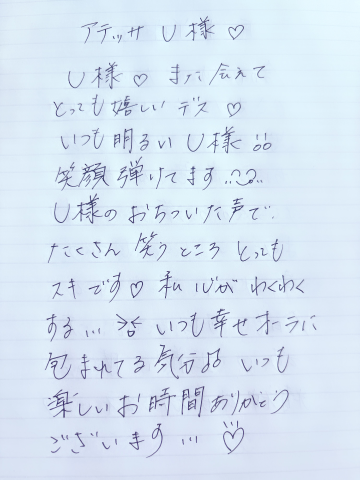 アテッサ U様 ♡
U様 ♡ また 会えて
とっても嬉しい デス ♡
いつも 明るい U様
笑顔 弾けてます
U様の おちついた声で、
たくさん 笑う ところ とっても
スキです♡ 私 心が わくわく
する... いつも 幸せオーラに
包まれてる 気分 いつも
楽しい お時間 ありがとう
ございます ... ♡